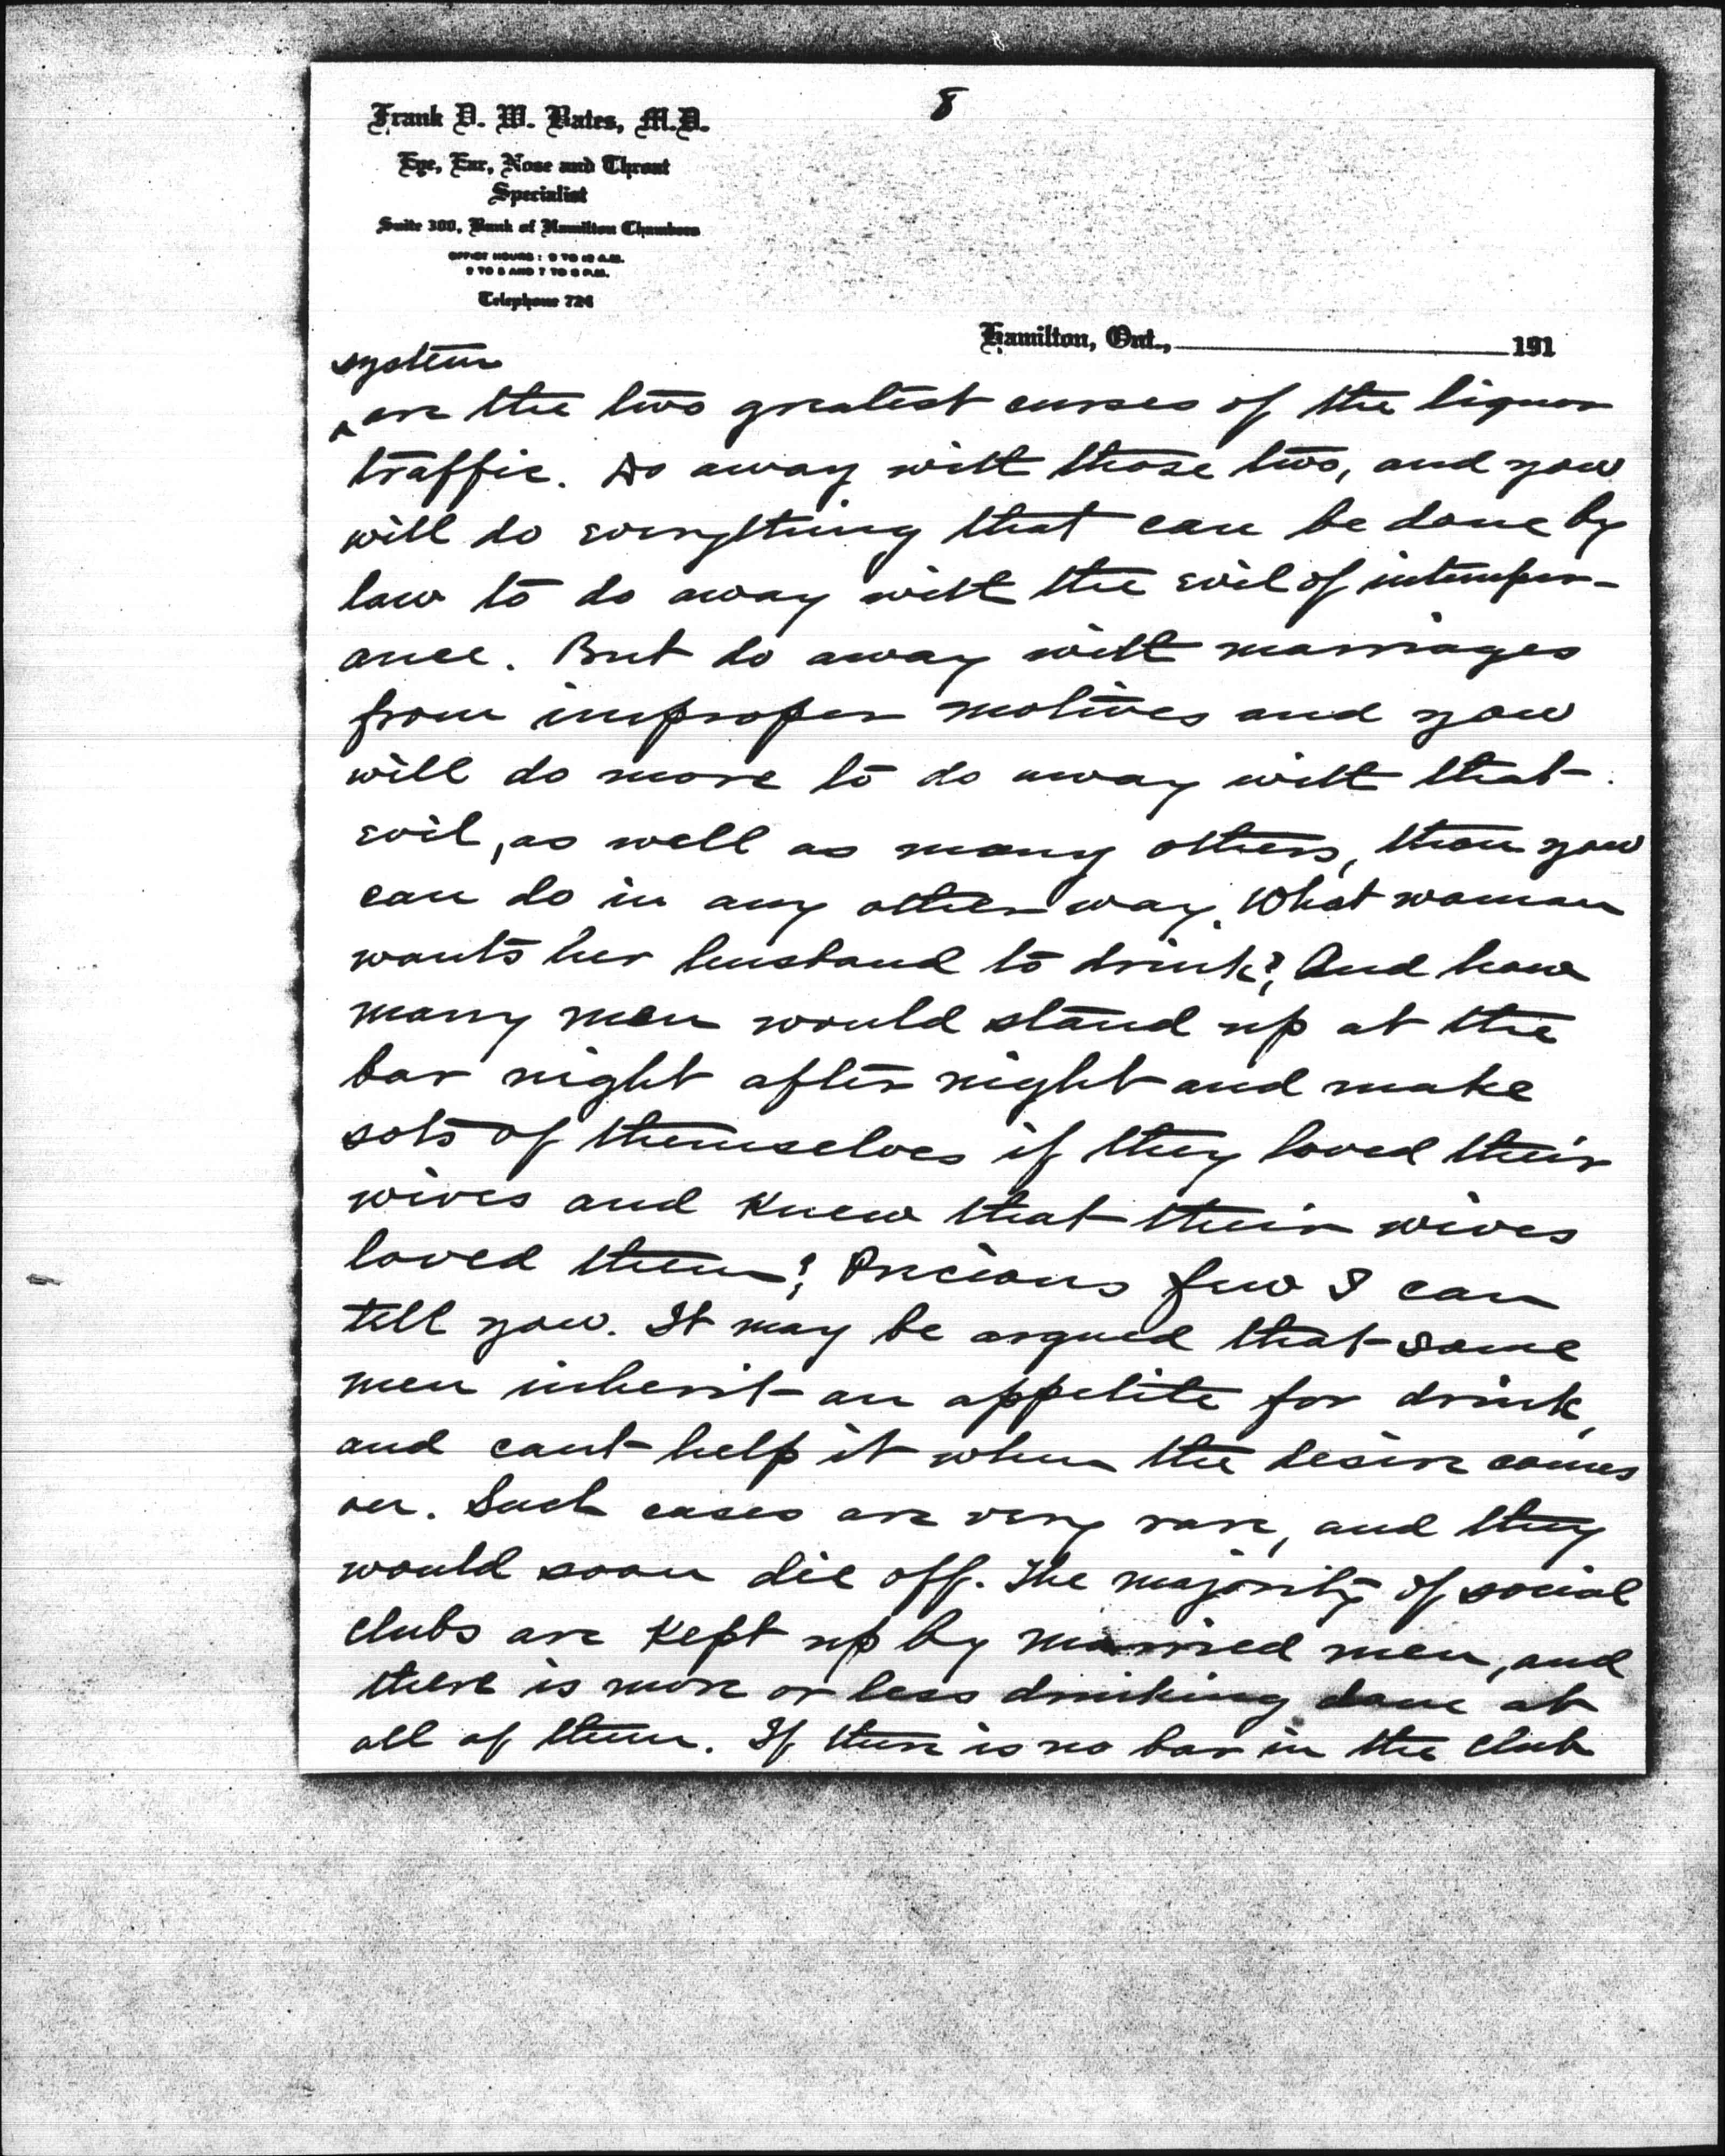 8
Frank D. W. Bates, M.D.
Eye, Ear, Nose and Throat
Specialist
Suite 300, Bank of Hamilton Chambers
OFFICE HOURS: 9 TO
TO 5 AND 7 TO 8 P.M.
Telephone 724
Hamilton, Ont., 191
system
^ are the two greatest curses of the liquor
traffic. Do away with those two, and you
will do everything that can be done by
law to do away with the evil of intemper-
ance. But do away with marriages
from improper motives and you
will do more to do away with that
evil, as well as many others, than you
can do in any other way. What woman
wants her husband to drink? And how
many men would stand up at the
bar night after night and make
sots of themselves if they loved their
wives and knew that their wives
loved them? Precious few I can
tell you. It may be argued that some
men inherit an appetite for drink,
and cant help it when the desire comes
on. Such cases are very rare, and they
would soon die off. The majority of social
clubs are kept up by married men, and
there is more or less drinking done at
all of them. If there is no bar in the club